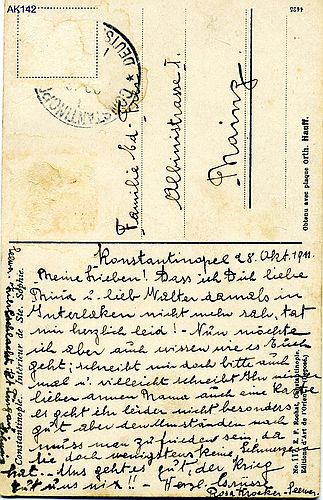 AK142
2644
CONSTANTINOPEL 1
DEUTS
Familie Ed.
Albinistrasse 1.
Mainz
Obtenu avec plaque Orth. Hauff.
Konstantinopel 28. Okt. 1911.
Meine Lieben! Dass ich Dich liebe
u. lieb Walter damals in
Interlaken nicht mehr sah, tat
mir herzlich leid! - Nun möchte
ich aber auch wissen wie es Euch
geht; schreibt mir doch bitte auch
mal u. vielleicht schreibt Ihr meiner
lieben armen Mama auch eine Karte
es geht ihr leider nicht besonders
gut aber den Umständen nach
muss man zufrieden sein, da
sie doch wenigstens keine Schmerzen
hat. - Uns geht es gut, der Krieg
tut uns nix!! - Herzl. Grüsse
Rosa
Constantinople. Intérieur de Ste. Sophie.
No. 11 E. F. Rochat, Constantinople.
Editions d'Art de l'Orient